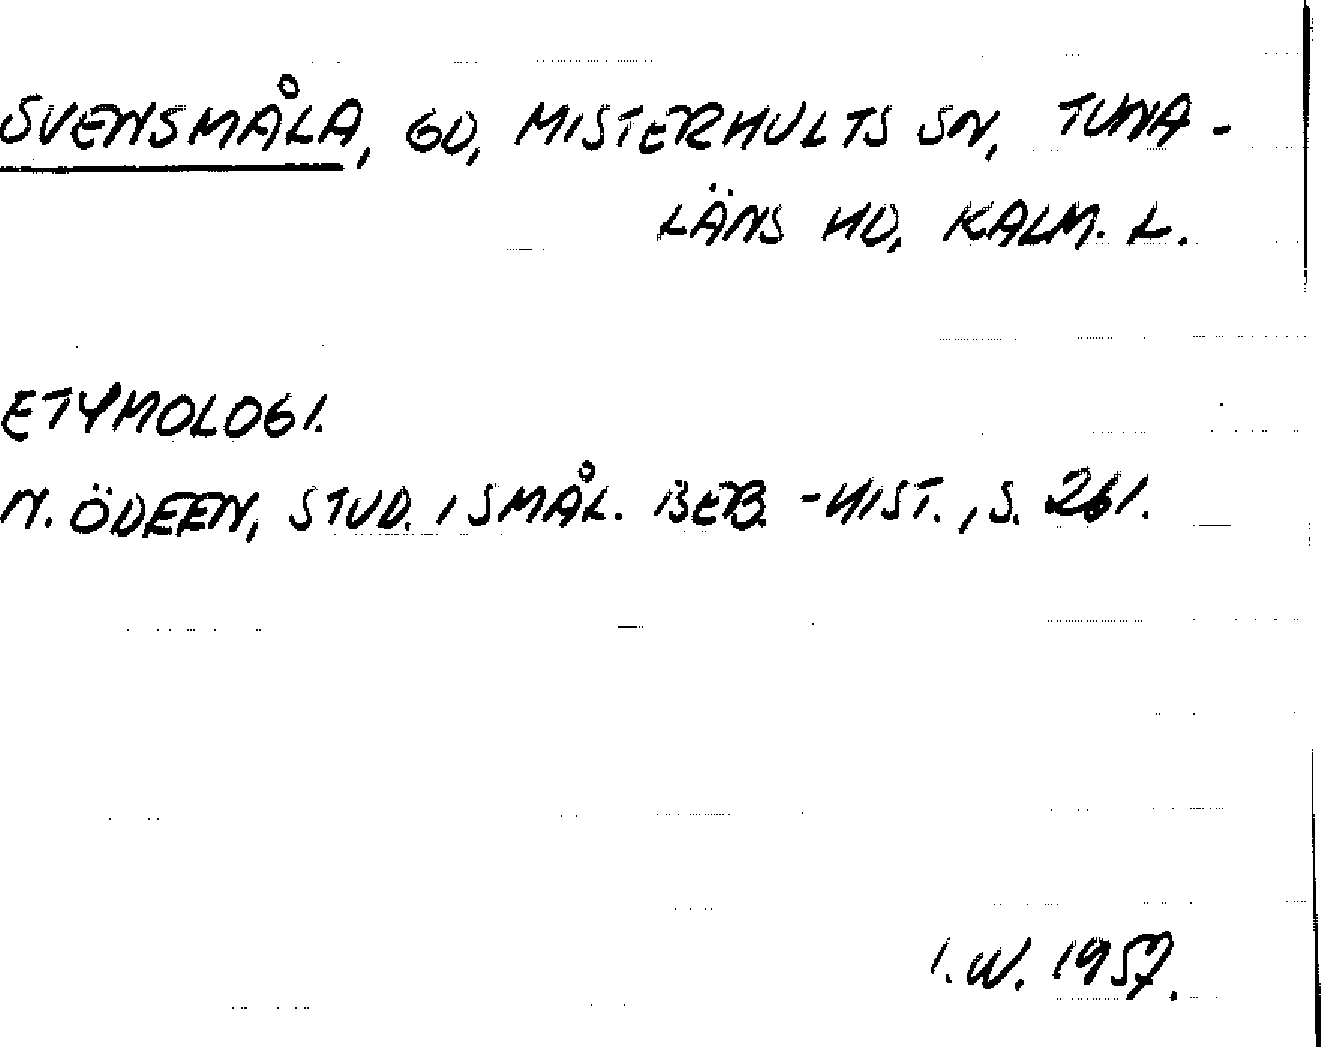 SVENSMÅLA, GD, MISTERHULTS SN, TUNA-
LÄNS HD, KALM. L.
ETYMOLOGI.
N. ÖDEEN, STUD. I SMÅL. BEB.-HIST., S. 261.
I.W. 1957.